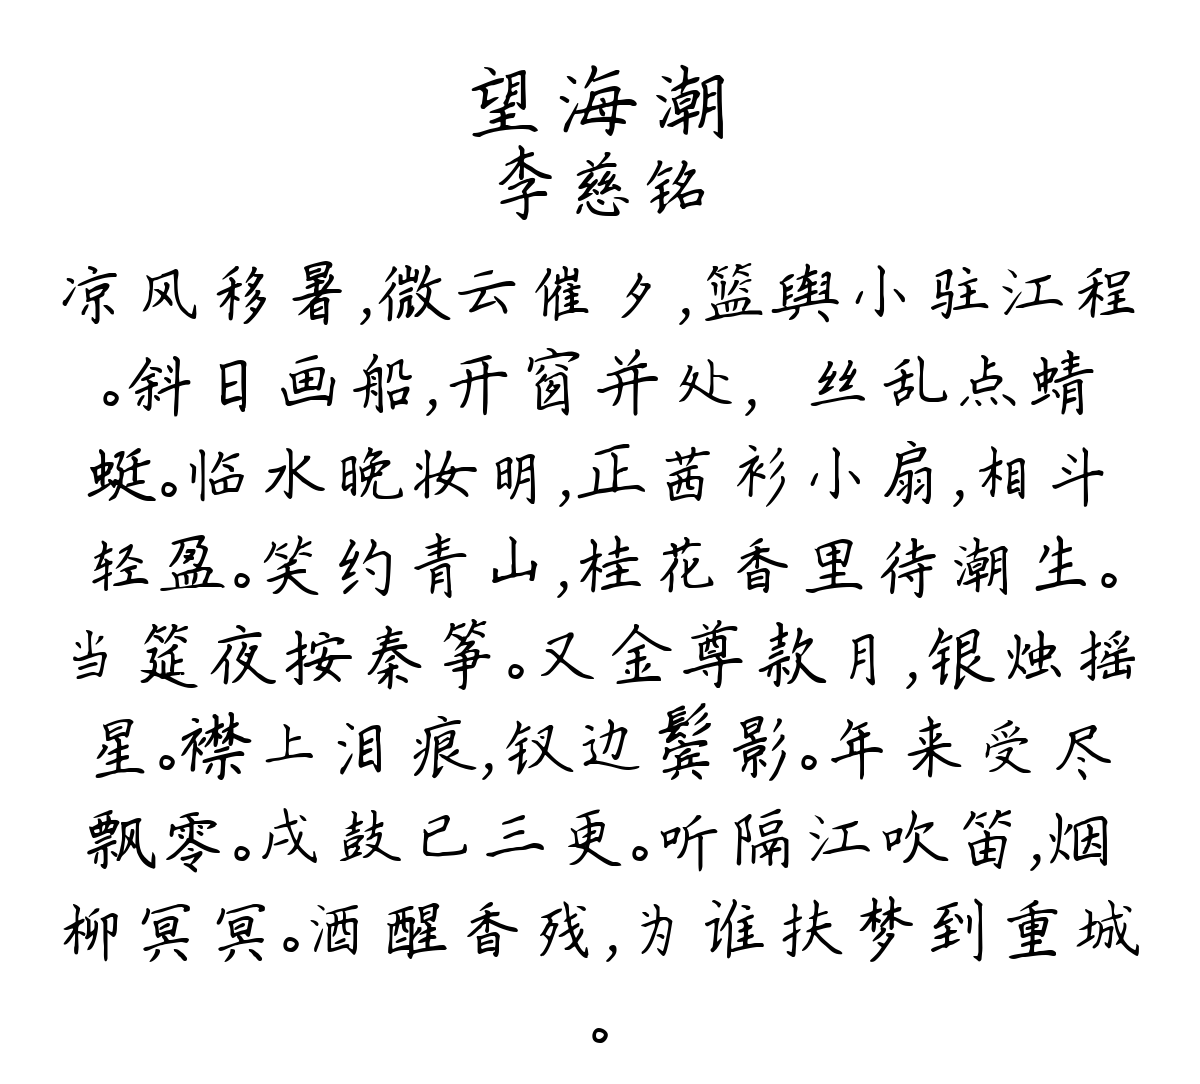 望海潮
李慈铭
凉风移暑,微云催夕,篮舆小驻江程
。斜日画船,开窗并处, 丝乱点蜻
蜓。临水晚妆明,正茜衫小扇,相斗
轻盈。笑约青山,桂花香里待潮生。
当筵夜按秦筝。又金尊款月,银烛摇
星。襟上泪痕,钗边鬓影。年来受尽
飘零。戍鼓已三更。听隔江吹笛,烟
柳冥冥。酒醒香残,为谁扶梦到重城
。